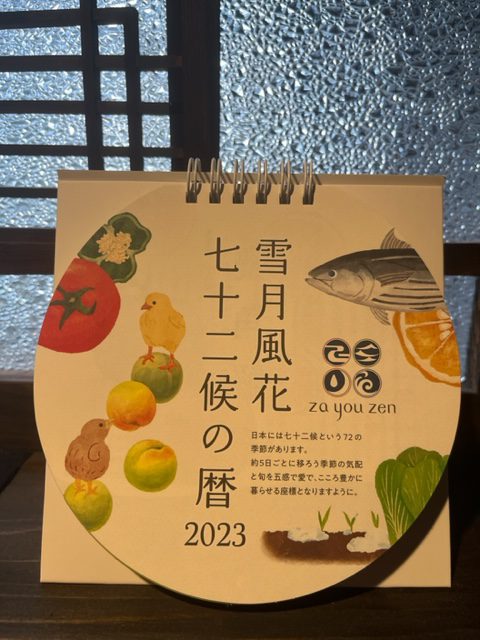 雪月風花
七十二候の暦
2023
za you zen
日本には七十二候という72の
季節があります。
約5日ごとに移ろう季節の気配
と旬を五感で愛で、こころ豊かに
暮らせる座標となりますように。